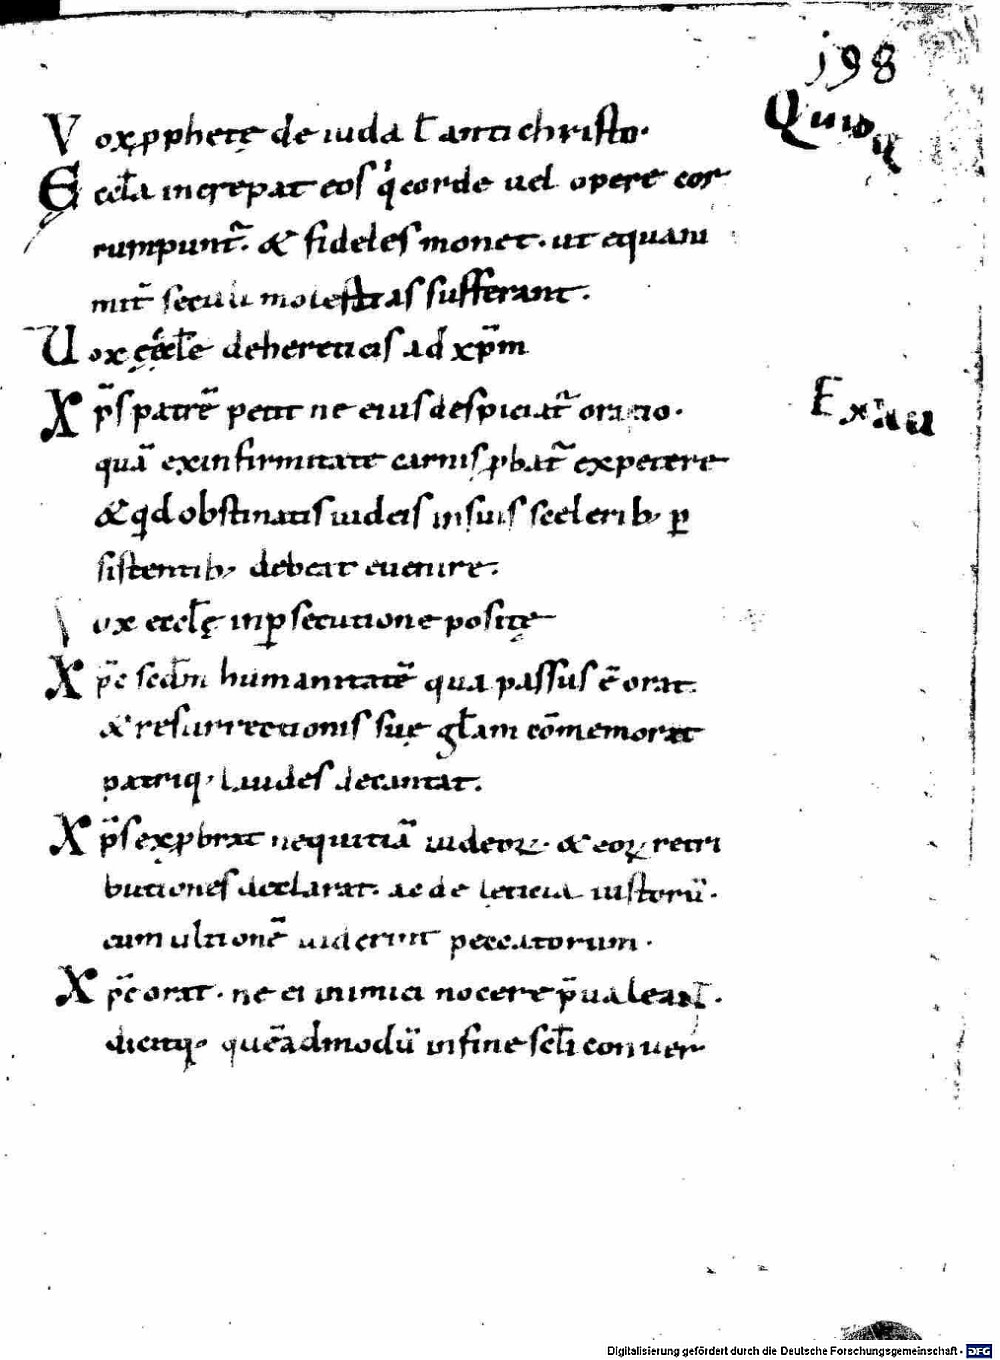 198
Vox ꝓphetę de iuda ł antichristo.
Ecc̄la increpat eos qͥ corde uel opere cor
rumpunt᷑. & fideles monet. ut equani
mit᷑ seculi molestias sufferant.
Uox ęccl̄e de hereticis ad xp̄m
Xp̄s patrē petit ne eius despiciat᷑ oratio.
quā ex infirmitate carnis ꝓbat᷑ expetere
& qd obstinatis iudeis in suis sceleribꝫ ꝑ
sistentibꝫ debeat euenire.
Vox eccl̄ę in ꝑsecutione positę
Xp̄c scdm̄ humanitatē qua passus ē orat.
& resurrectionis suę gl̄am cōmemorat
patriq; laudes decantat.
Xp̄s exꝓbrat nequitiā iudeoꝝ. & eoꝝ retri
butiones declarat. ac de leticia iustorū.
cum ultionē uiderint peccatorum.
Xp̄c orat. ne ei inimici nocere p̄ualeant.
dicitq; quēadmodū in fine scl̄i conuer
Quid
Exau